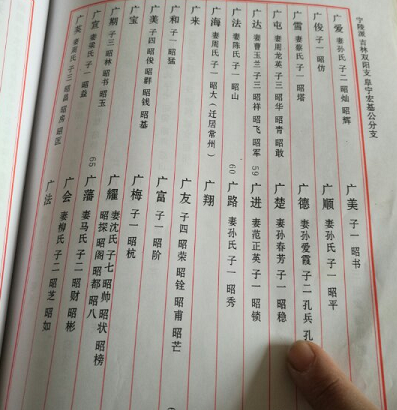 宁陵派吉林双阳支阜宁宏基公分支
广爱 妻孙氏 子二 昭灿 昭辉
广俊 子一 昭仿
广雪 妻蔡氏 子一 昭塔
广屯 妻周龙英 子三 昭华 昭青 昭敢
广达 妻曹玉兰 子三 昭祥 昭飞 昭军
广法 妻陈氏 子一 昭山
广海 妻周氏 子一 昭大（迁居常州）
广来
广和 子一 昭猛
广美 子四 昭俊 昭群 昭钱 昭基
广宝
广期 子三 昭林 昭书 昭玉
妻梁氏 子一
广英 妻周氏 子三 昭昌 昭房 昭医
广美 子一 昭书
广顺 妻孙氏 子一 昭平
广德 妻孙爱霞 子二 孔兵 孔
广楚 妻孙春芳 子一 昭稳
59
广进 妻范正英 子一 昭锁
60
广路 妻孙氏 子一 昭秀
广翔
广友 子四 昭荣 昭铨 昭甫 昭芒
广富 子一 昭阶
广梅 子一 昭杭
广耀 妻沈氏 子七 昭帅 昭状 昭榜
昭探 昭阁 昭都 昭八
65
广藩 妻马氏 子二 昭财 昭彬
广会 妻柳氏 子二 昭芝 昭如
广法